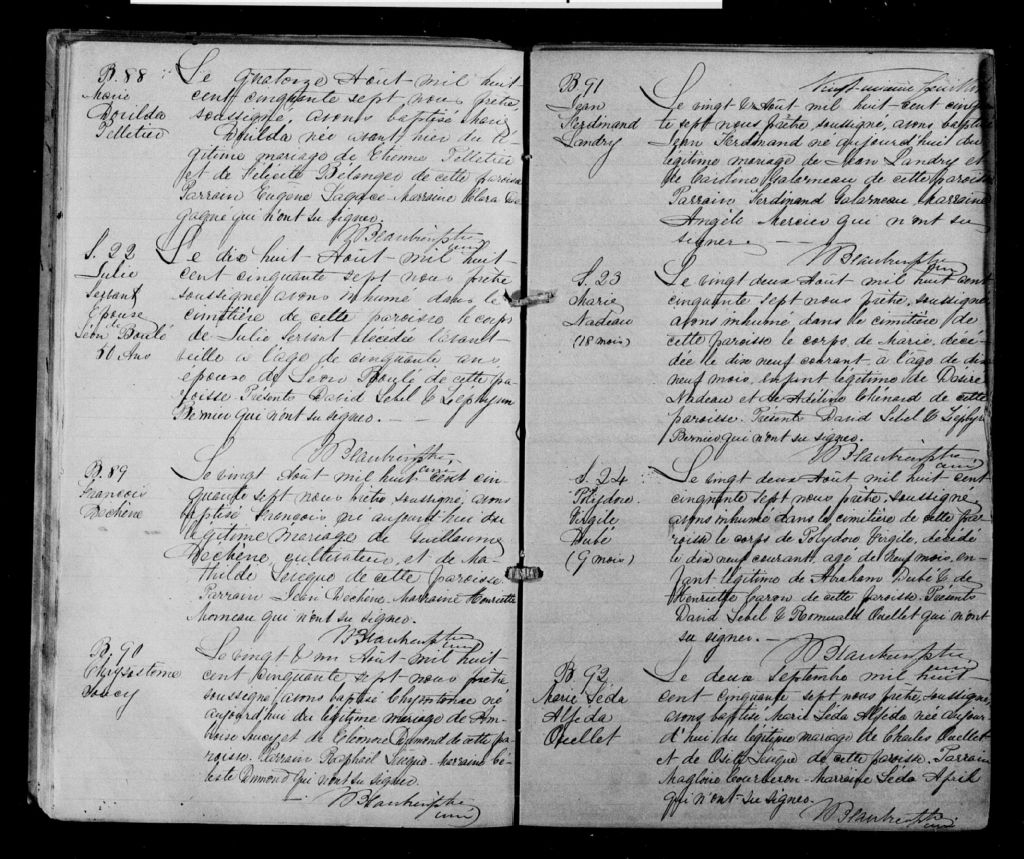 B. 88
Marie
Douilda
Pelletier
Le quatorze Août mil huit
cent cinquante sept nous prêtre
soussigné, avons baptisé Marie
Douilda née avant hier du lé-
gitime mariage de Etienne Pelletier
et de Félicité Bélanger de cette paroisse
Parrain Eugène Marraine Clara
gagné qui n'ont su signer.
S. 22
Julie
Servant
Epouse
de
Léon Boulé
50 Ans
Le dix huit Août mil huit
cent cinquante sept nous prêtre
soussigné avons inhumé dans le
cimetière de cette paroisse le corps
de Julie Servant décédée l'avant
veille a l'âge de cinquante ans
épouse de Léon Boulé de cette pa-
roisse. Présents David Lebel & Zéphyrin
Bernier qui n'ont su signer.
B. 89
François
Dechêne
Le vingt Aout mil huit cent cin-
quante sept nous prêtre soussigné, avons
baptisé François né aujourd'hui du
légitime mariage de Guillaume
Dechêne cultivateur et de Ma-
thilde de cette paroisse
Parrain Jean Dechêne Marraine Henriette
Morneau qui n'ont su signer.
B. 90
Chrysostome
Soucy
Le vingt & un Août mil huit
cent cinquante sept nous prêtre
soussigné avons baptisé Chrysostome né
aujourd'hui du légitime mariage de Am-
broise Soucy et de Eléonore Dumond de cette pa-
roisse. Parrain Raphael Marraine Cé-
leste Dumond qui n'ont su signer.
B. 91
Jean
Ferdinand
Landry
Le vingt & Août mil huit cent cinquan-
te sept nous prêtre, soussigné, avons baptisé
Jean Ferdinand né aujourd'huit du
légitime mariage de Jean Landry et
de Caroline Galarneau de cette paroisse
Parrain Ferdinand Galarneau Marraine
Angèle Mercier qui n'ont su
signer.
S. 23
Marie
Nadeau
(18 mois)
Le vingt deux Août mil huit cent
cinquante sept nous prêtre, soussigné
avons inhumé, dans le cimitière de
cette paroisse le corps de Marie, décé-
dée le dix neuf courant à l'âge de dix
neuf mois, enfant légitime de Désiré
Nadeau et de Adeline Chénard de cette
paroisse. Présents David Lebel & Zéphyrin
Bernier qui n'ont su signer.
S. 24
Polydore
Virgile
Dubé
(9 mois)
Le vingt deux Août mil huit cent
cinquante sept nous prêtre, soussigné
avons inhumé dans le cimitière de cette pa-
roisse le corps de Polydore Virgile, décédé
le dix neuf courant, agé de neuf mois, en-
fant légitime de Abraham Dubé & de
Henriette Caron de cette paroisse. Présents
David Lebel & Romuald Ouellet qui n'ont
su signer.
B 92
Marie Léda
Alféda
Ouellet
Le deux Septembre mil huit
cent cinquante sept nous prêtre, soussigné,
avons baptisé Marie Léda Alféda née aujour-
d'hui du légitime mariage de Charles Ouellet
et de de cette paroisse, Parrain
Magloire Marraine Léda April
qui n'ont su signer.